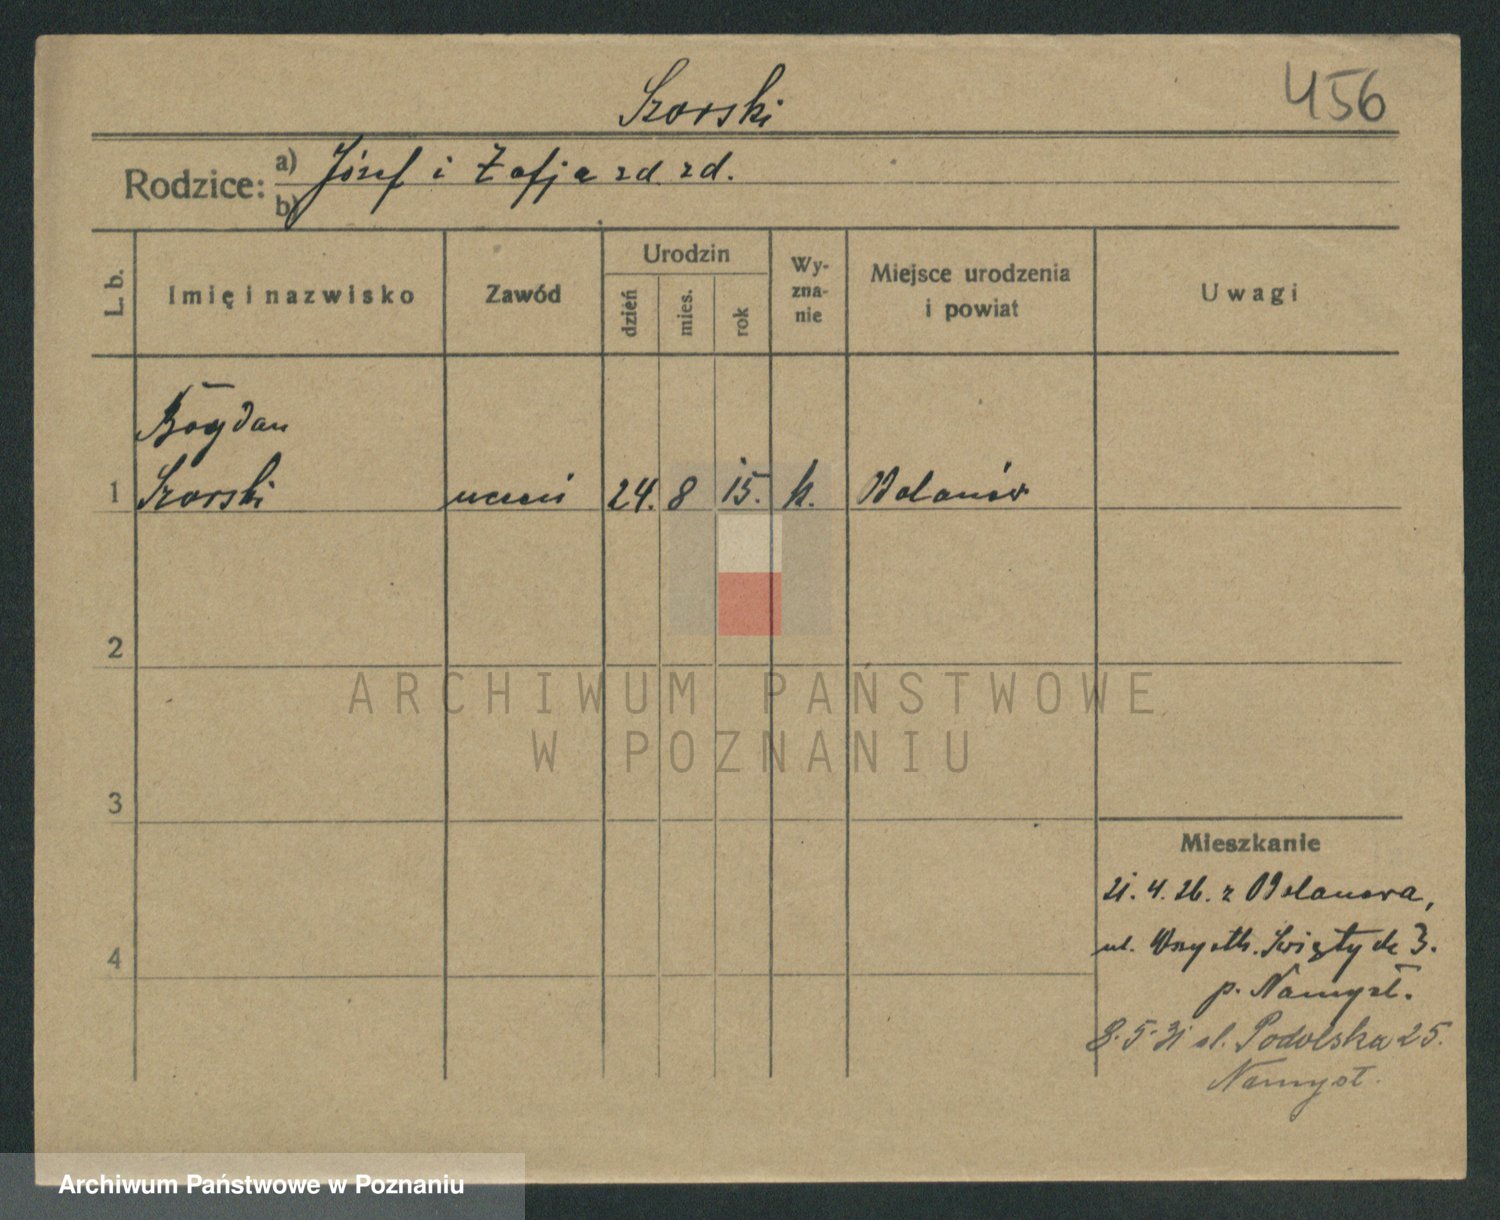 Szorski
456
Rodzice: a) Józef i Zofja zd. zd.
b)
L. b.
Imię i nazwisko
Zawód
Urodzin
dzień
mies.
rok
Wy-
zna-
nie
Miejsce urodzenia
i powiat
Uwagi
Bogdan
1 Szorski uczeń 24. 8 15. k. Bolanów
2
ARCHIWUM PAŃSTWOWE
W POZNANIU
3
Mieszkanie
21. 4. 26. z
ul. Wszystk. Świętych 3.
4
p. Namysł.
8. 5. 31 ul. Podolska 25.
Namysł.
Archiwum Państwowe w Poznaniu